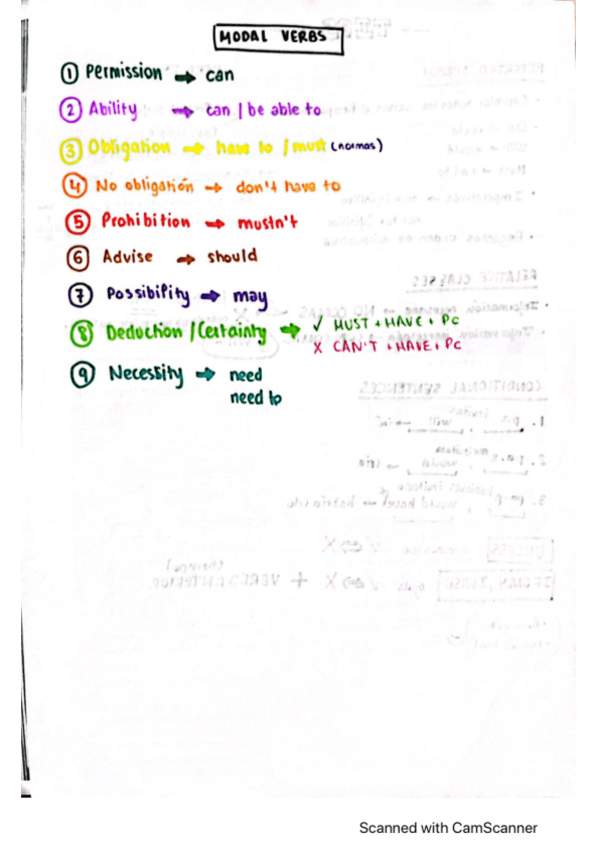 MODAL VERBS
① Permission → can
② Ability → can / be able to
③ Obligation → have to / must (normas)
④ No obligation → don't have to
⑤ Prohibition → mustn't
⑥ Advise → should
⑦ Possibility → may
⑧ Deduction / Certainty → ✓ MUST + HAVE + PC
X CAN'T + HAVE + PC
⑨ Necessity → need
need to
Scanned with CamScanner